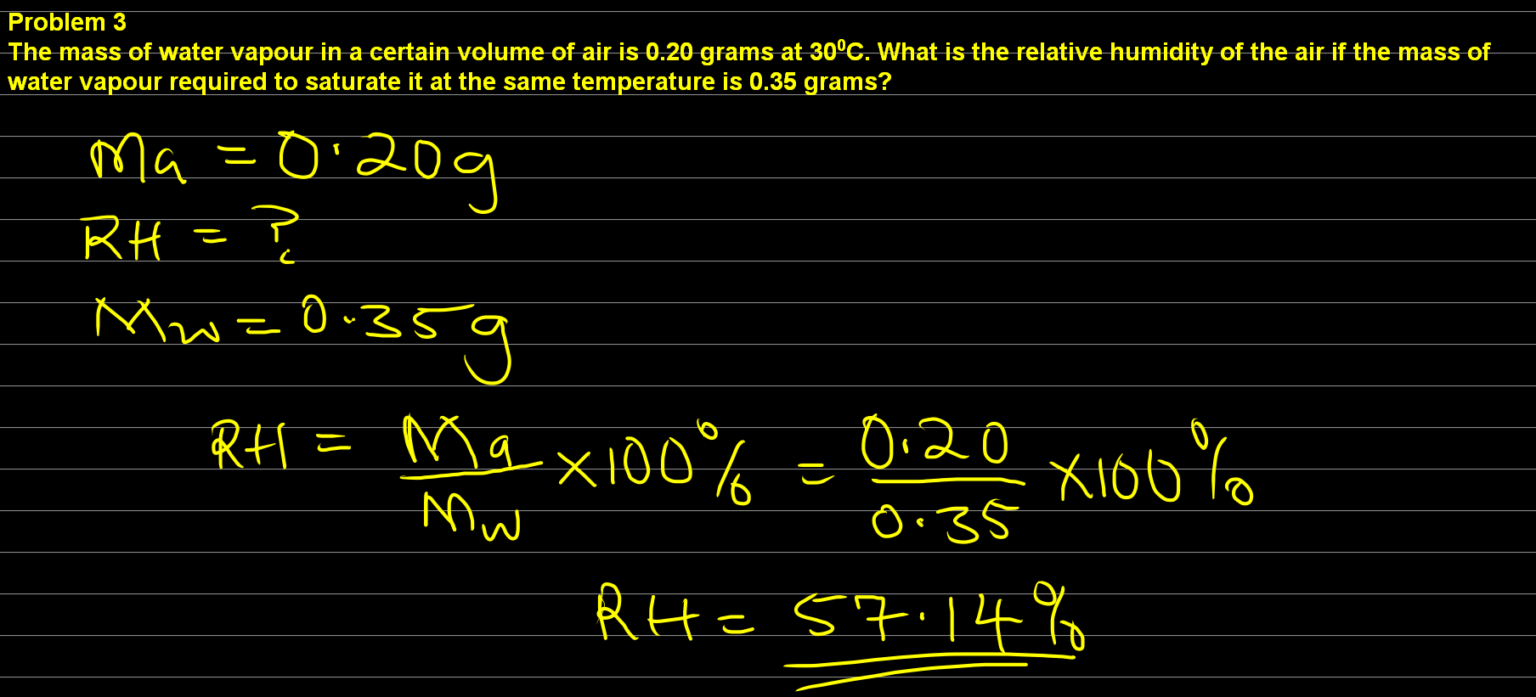 Problem 3
The mass of water vapour in a certain volume of air is 0.20 grams at 30⁰C. What is the relative humidity of the air if the mass of
water vapour required to saturate it at the same temperature is 0.35 grams?
Ma = 0.20g
RH = ?
Mw = 0.35g
RH = Ma/Mw × 100% = 0.20/0.35 × 100%
RH = 57.14%